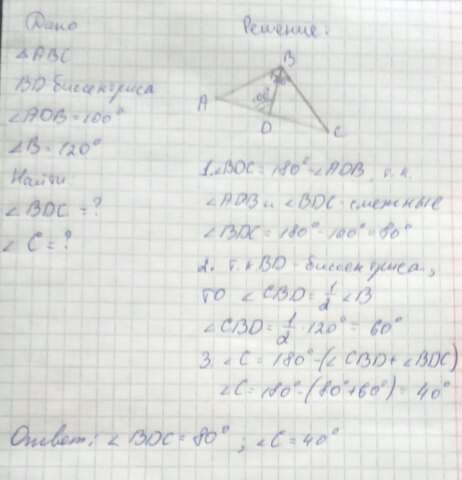 Дано
△ABC
BD-биссектриса
∠ADB=100°
∠B=120°
Найти
∠BDC=?
∠C=?
Решение:
B
A
100°
D
C
1. ∠BDC=180°-∠ADB, т.к.
∠ADB и ∠BDC-смежные
∠BDC=180°-100°=80°
2. т.к BD-биссектриса,
то ∠CBD=1/2 ∠B
∠CBD=1/2·120°=60°
3. ∠C=180°-(∠CBD+∠BDC)
∠C=180°-(80°+60°)=40°
Ответ: ∠BDC=80°; ∠C=40°